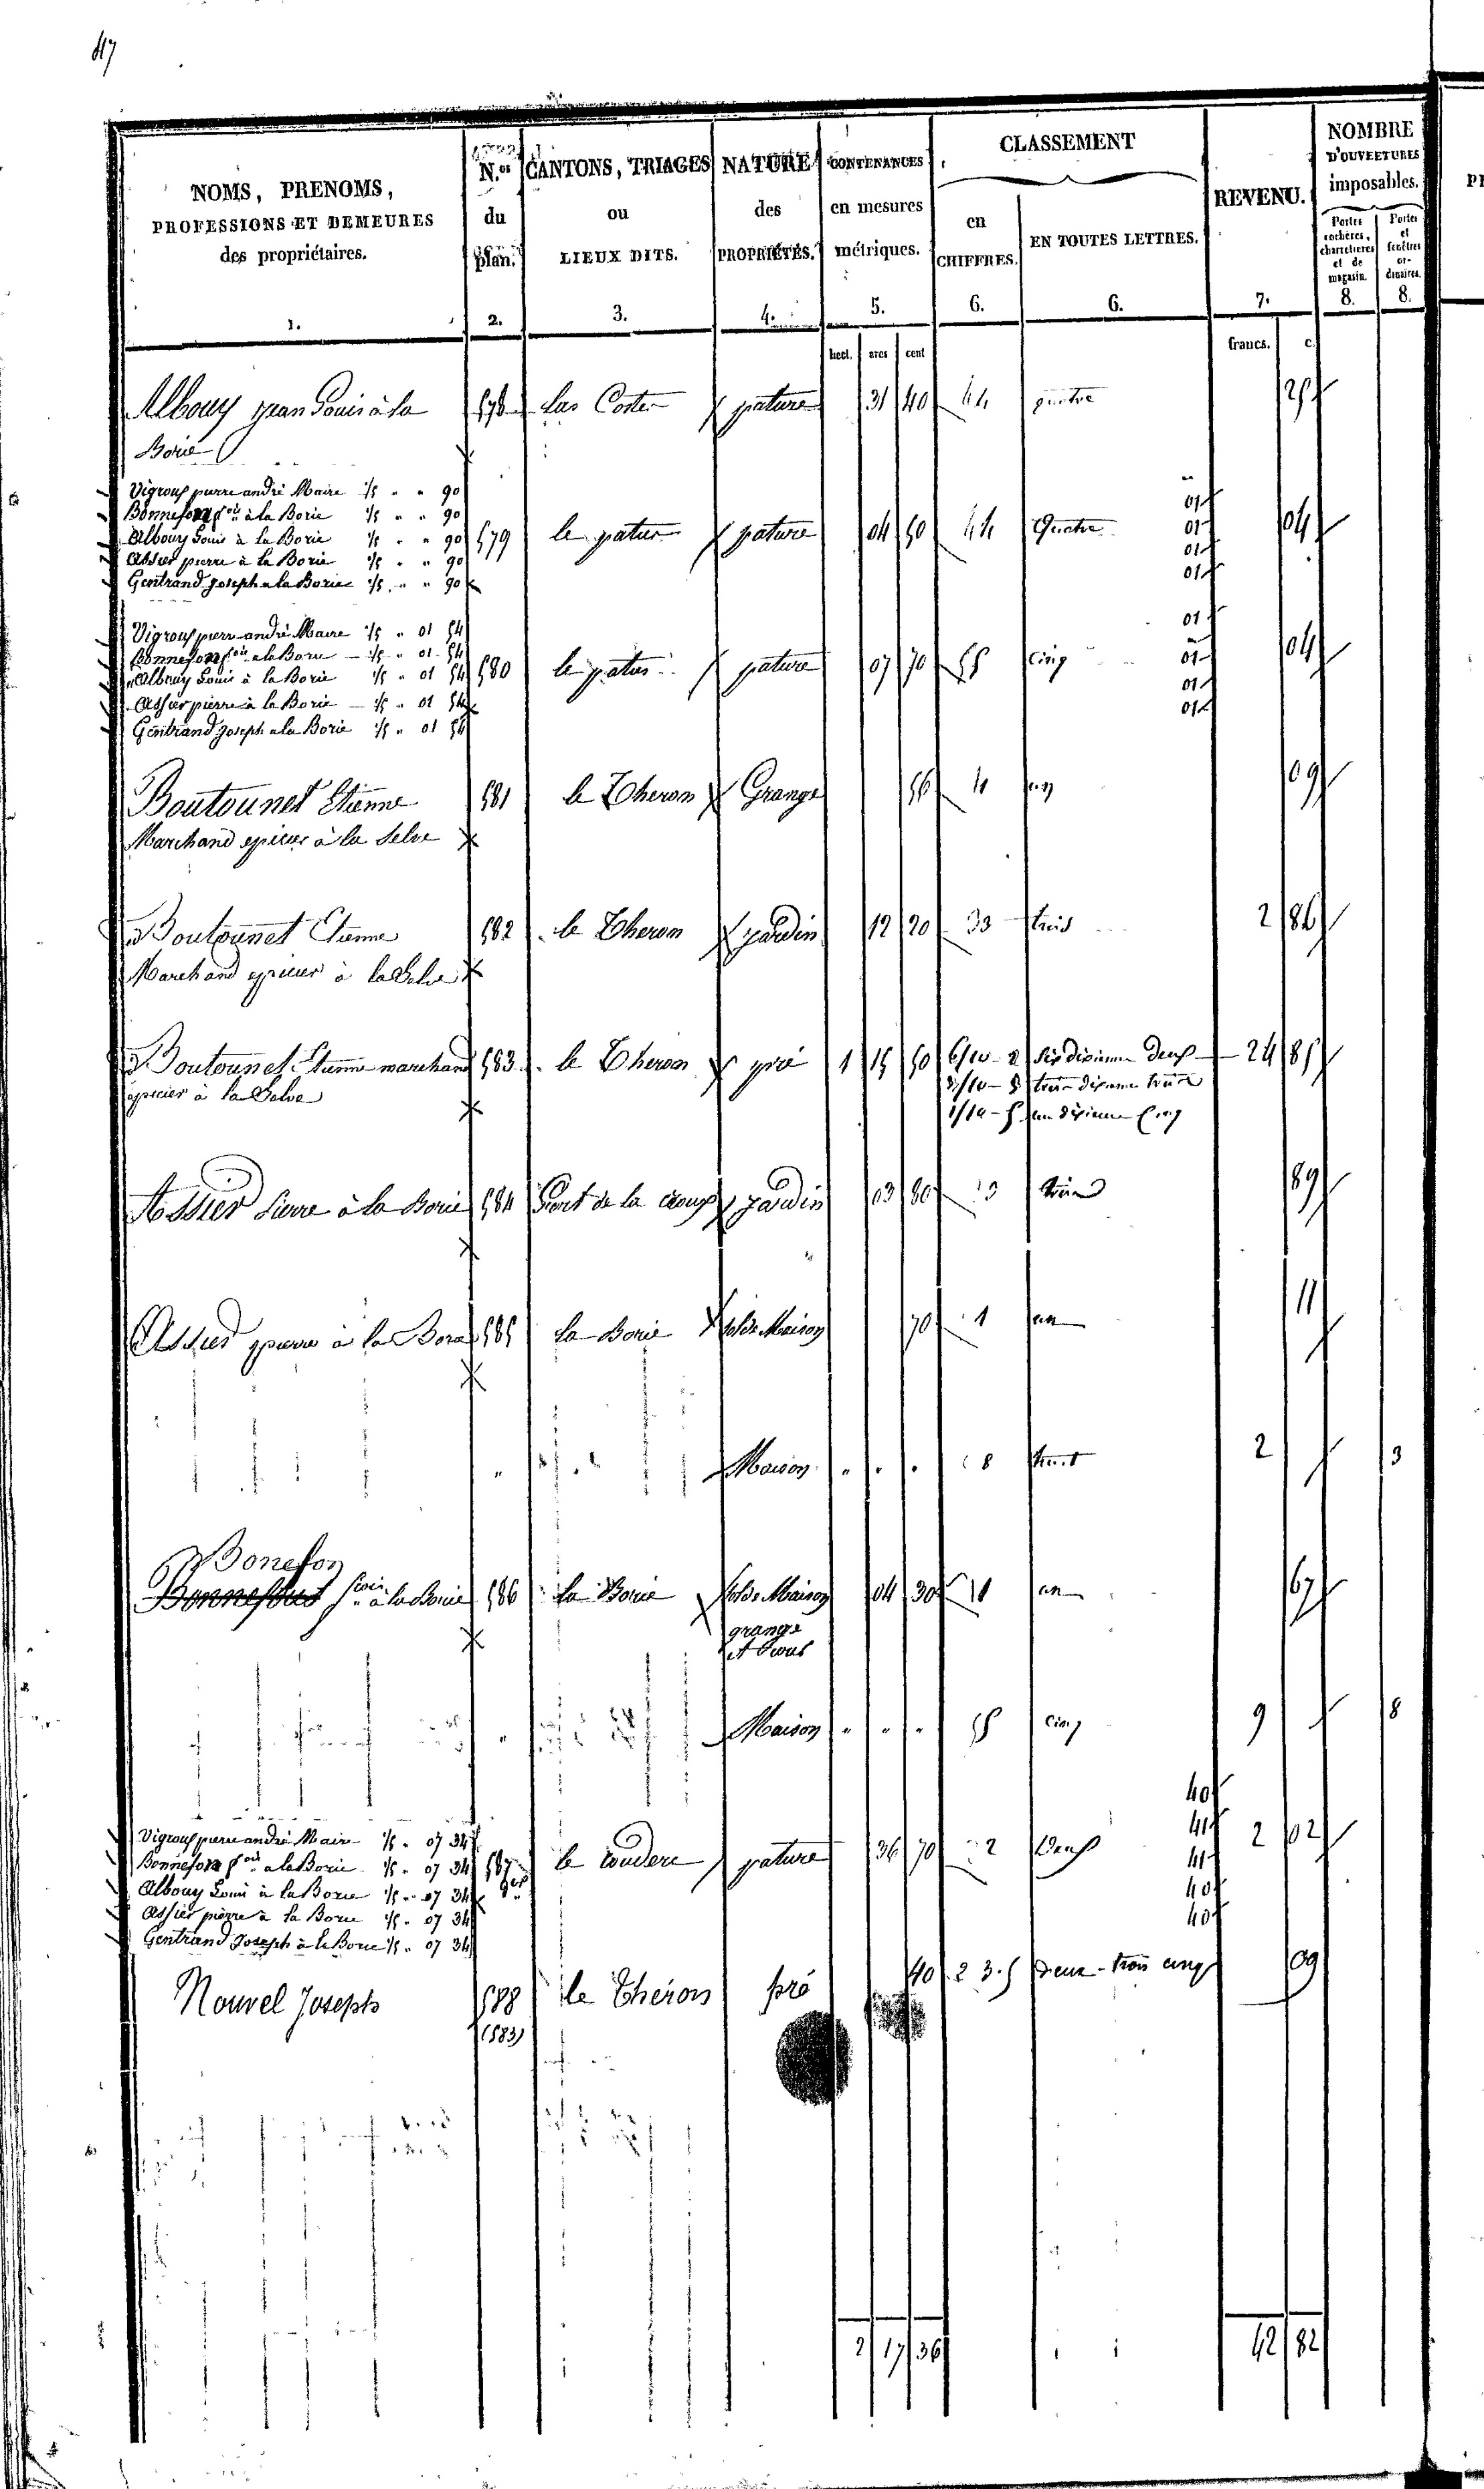 47
NOMS, PRENOMS,
PROFESSIONS ET DEMEURES
des propriétaires.
1.
N.os
du
plan.
2.
CANTONS, TRIAGES
ou
LIEUX DITS.
3.
NATURE
des
PROPRIÉTÉS.
4.
CONTENANCES
en mesures
métriques.
5.
CLASSEMENT
en
CHIFFRES.
6.
EN TOUTES LETTRES.
6.
REVENU.
7.
NOMBRE
D'OUVERTURES
imposables.
Portes cochères, charretières et de magasin.
8.
Portes et fenêtres ordinaires.
8.
hect. ares cent francs. c.
Albouy jean Louis à la 578 Las Costes pature 31 40 4 quatre 25
Borie
Vigroux pierre andré Maire 1/5 " " 90
Bonnefon f.ois à la Borie 1/5 " " 90 01
Albouy Louis à la Borie 1/5 " " 90 579 le patus pature 04 50 4 Quatre 01 04
Assier pierre à la Borie 1/5 " " 90 01
Gentrand Joseph a la Borie 1/5 " " 90 01
Vigroux pierre andré Maire 1/5 " 01 54 01
Bonnefon f.ois a la Borie 1/5 " 01 54
Albouy Louis à la Borie 1/5 " 01 54 580 le patus pature 07 70 5 cinq 01 04
Assier pierre à la Borie 1/5 " 01 54 01
Gentrand Joseph a la Borie 1/5 " 01 54 01
Boutounet Etienne 581 le Theron Grange 56 1 09
Marchand epicier à la Selve
Boutounet Etienne 582 le Theron jardin 12 20 3 trois 2 86
Marchand epicier à la Selve
Boutounet Etienne marchand 583 le Theron pré 1 15 50 6/10 - 2 Six dixieme Deux 24 85
epicier à la Selve 3/10 - 3 trois dixieme trois
1/10 - 5 un dixieme Cinq
Assier Pierre à la Borie 584 jardin 03 80 3 trois 89
Assier pierre à la Borie 585 La Borie Sol de Maison 70 1 un 11
" Maison " " " 8 huit 2 3
Bonefon
Bonnefous f.ois à la Borie 586 La Borie Sol de Maison 04 30 1 un 67
grange
et Cour
" Maison " " " 5 Cinq 9 8
40
Vigroux pierre andré Maire 1/5 " 07 34 41
Bonnefon f.ois a la Borie 1/5 " 07 34 587 le Couderc pature 36 70 2 Deux 41 2 02
Albouy Louis à la Borie 1/5 " 07 34 40
Assier pierre a la Borie 1/5 " 07 34 40
Gentrand Joseph à la Borie 1/5 " 07 34
Nouvel Joseph 588 le Theron pré 40 2 3.5 Deux - trois cinq 09
(583)
2 17 36 42 82